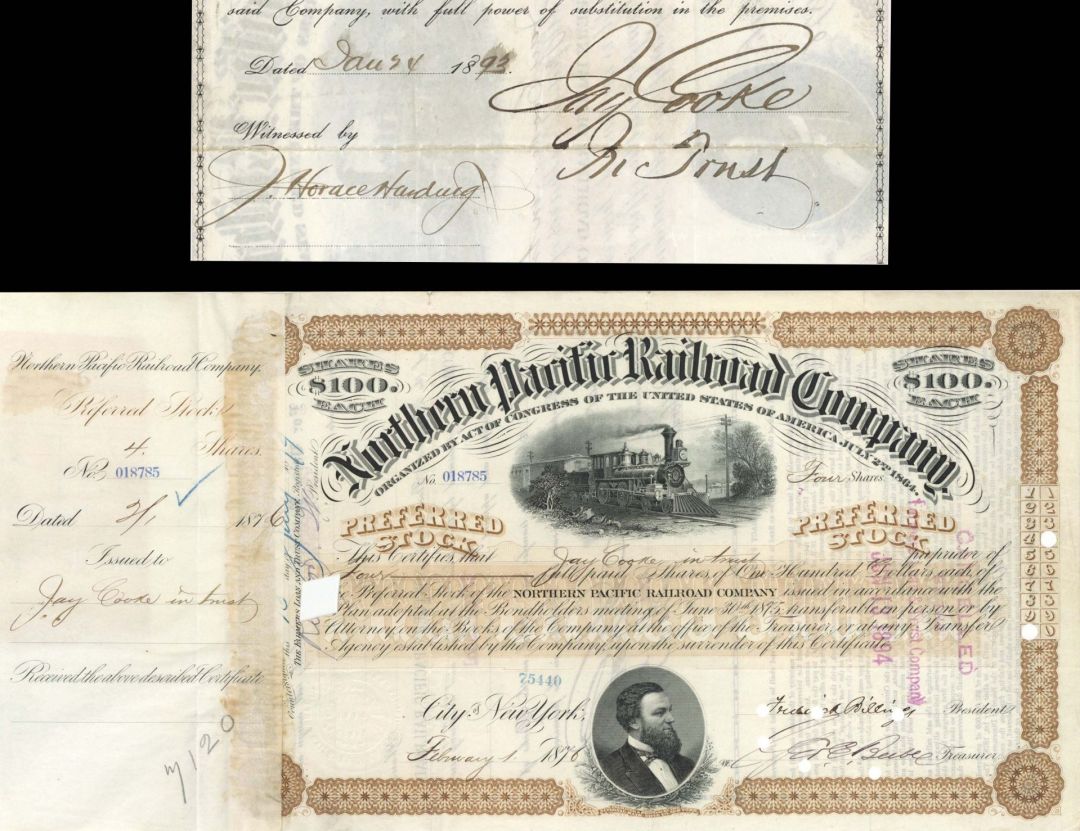 said Company, with full power of substitution in the premises.
Dated Jan 24 1893.
Jay Cooke
In Trust
Witnessed by
J. Horace Harding
Northern Pacific Railroad Company.
Preferred Stock
4 Shares.
No. 018785
Dated 2/1 1876
Issued to
Jay Cooke in trust
Received the above described Certificate
M 120
SHARES $100. EACH
SHARES $100. EACH
Northern Pacific Railroad Company,
ORGANIZED BY ACT OF CONGRESS OF THE UNITED STATES OF AMERICA, JULY 2ND 1864.
No. 018785
Four Shares
PREFERRED STOCK
PREFERRED STOCK
This Certifies that Jay Cooke in trust proprietor of
Four full paid Shares of One Hundred Dollars each of
the Preferred Stock of the NORTHERN PACIFIC RAILROAD COMPANY issued in accordance with the
Plan adopted at the Bondholders meeting of June 30th 1875, transferable in person or by
Attorney on the Books of the Company at the office of the Treasurer, or at any Transfer
Agency established by the Company, upon the surrender of this Certificate.
75440
City of New York,
February 1 1876
Frederick Billings President
Treasurer
1 2 3 4 5 6 7 8 9
1 2 3 5 6 7 8 9